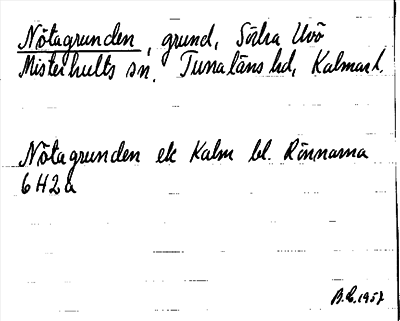 Nötagrunden, grund, Södra Uvö
Misterhults sn. Tunaläns hd, Kalmar l.
Nötagrunden ek Kalm bl. Rönnarna
6H2a
B.E. 1957